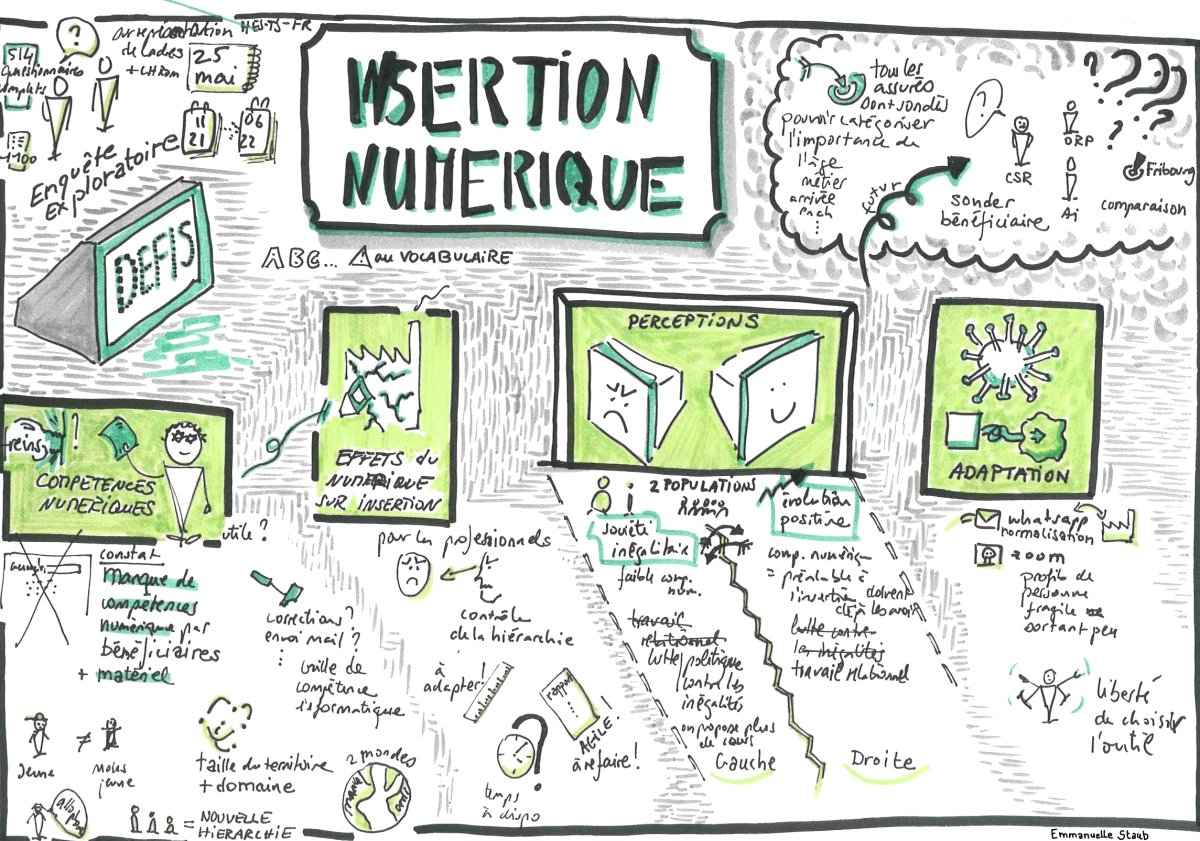 514
Questionnaires
complets
1100
?
HES-TS-FR
de cadres
25
mai
11
21
06
22
Enquête
exploratoire
DEFIS
INSERTION
NUMERIQUE
ABC... ⚠ au VOCABULAIRE
tous les
assurés
dont sondés
pouvoir catégoriser
l'importance de
l'âge
métier
arrivée
futur
sonder
bénéficiaire
CSR
ORP
AI
Fribourg
comparaison
reins
!
COMPETENCES
NUMERIQUES
EFFETS du
NUMERIQUE
SUR INSERTION
PERCEPTIONS
ADAPTATION
utile ?
constat
manque de
compétences
numérique par
bénéficiaires
+ matériel
corrections ?
envoi mail ?
taille de
compétence
informatique
Jeune
≠
Moins
jeune
taille du territoire
+ domaine
allophone
= NOUVELLE
HIERARCHIE
par les professionnels
contrôle
de la hiérarchie
à
adapter !
rapport
AGILE
à refaire !
temps
à dispo
2 mondes
2 POPULATIONS
société
inégalitaire
faible comp.
num.
travail
relationnel
lutte politique
contre les
inégalités
on propose plus
de cours
Gauche
évolution
positive
comp. numériq
= préalable à
l'insertion doivent
déjà les avoir
lutte contre
les inégalités
travail relationnel
Droite
whatsapp
normalisation
zoom
profite de
personne
fragile
sortant peu
liberté
de choisir
l'outil
Emmanuelle Staub